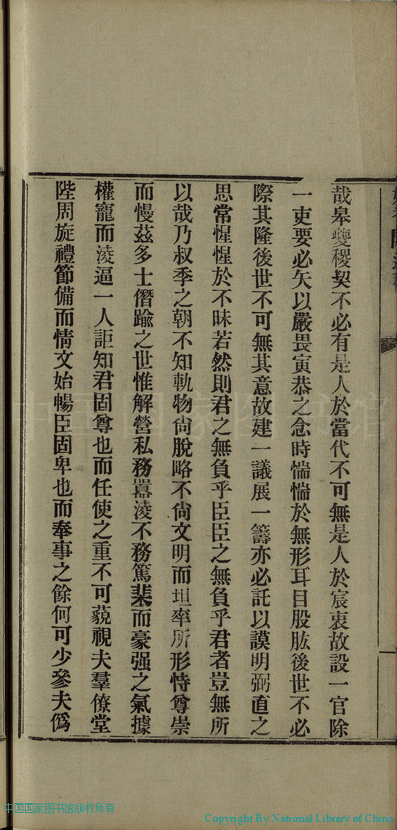 哉皋夔稷契不必有是人於當代不可無是人於宸衷故設一官除
一吏要必矢以嚴畏寅恭之念時惴惴於無形耳目股肱後世不必
際其隆後世不可無其意故建一議展一籌亦必託以謨明弼直之
思常惺惺於不昧若然則君之無負乎臣臣之無負乎君者豈無所
以哉乃叔季之朝不知軌物尙脫略不尙文明而坦率所形恃尊崇
而慢茲多士僭踰之世惟解營私務囂淩不務篤棐而豪强之氣據
權寵而淩逼一人詎知君固尊也而任使之重不可藐視夫羣僚堂
陛周旋禮節備而情文始暢臣固卑也而奉事之餘何可少參夫僞
中国国家图书馆版权所有
Copyright By National Library of China